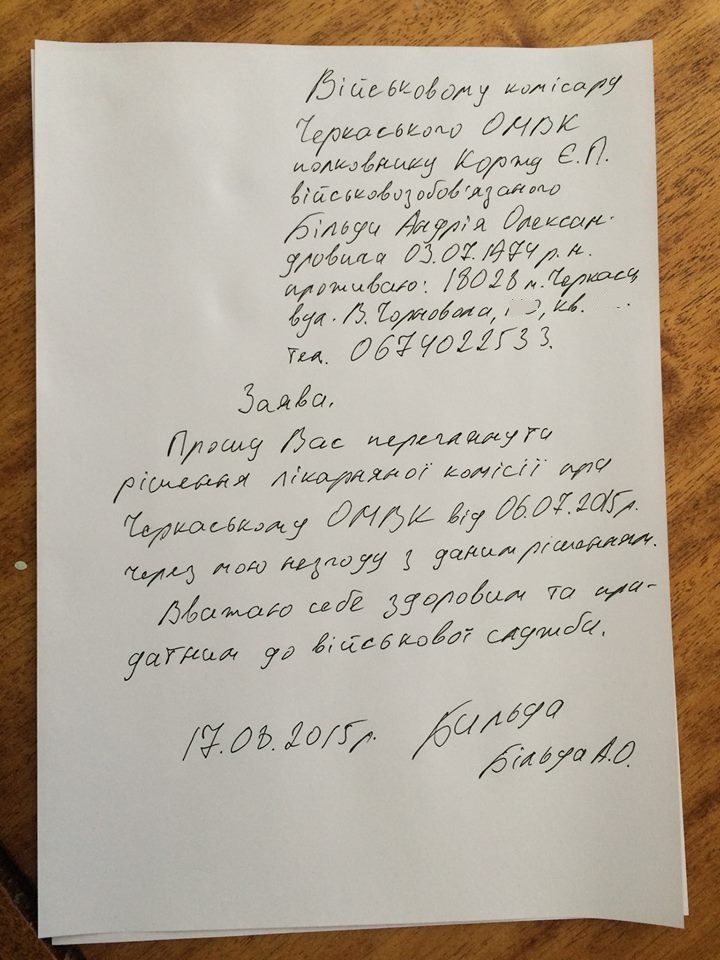 Військовому комісару
Черкаського ОМВК
полковнику Коржу Є.П.
військовозобов'язаного
Більди Андрія Олексан-
дровича 03.07.1974 р.н.
проживаю: 18028 м. Черкаси
вул. В. Чорновола, кв.
тел. 0674022533.
Заява.
Прошу Вас переглянути
рішення лікарняної комісії при
Черкаському ОМВК від 06.07.2015р.
через мою незгоду з даним рішенням.
Вважаю себе здоровим та при-
датним до військової служби.
17.08.2015р. Бильда
Більда А.О.